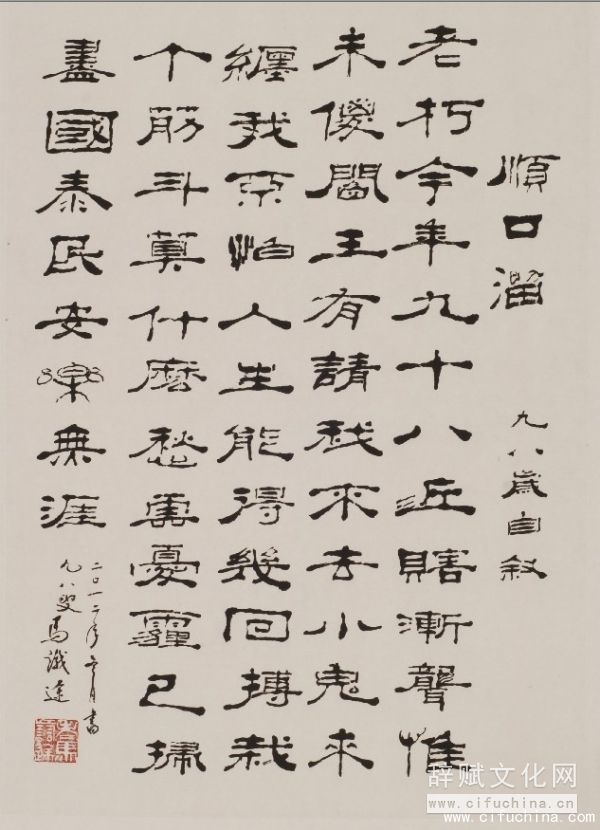 順口溜 九八歲自叙
老朽今年九十八近瞎漸聾惟
未傻閻王有請我不去小鬼來
纏我不怕人生能得幾回搏栽
个筋斗算什麼愁雲憂霾已掃
盡國泰民安樂無涯
二〇一二年月書
九八叟馬識途
辞赋文化网
www.cifuchina.cn
www.cifuchina.com